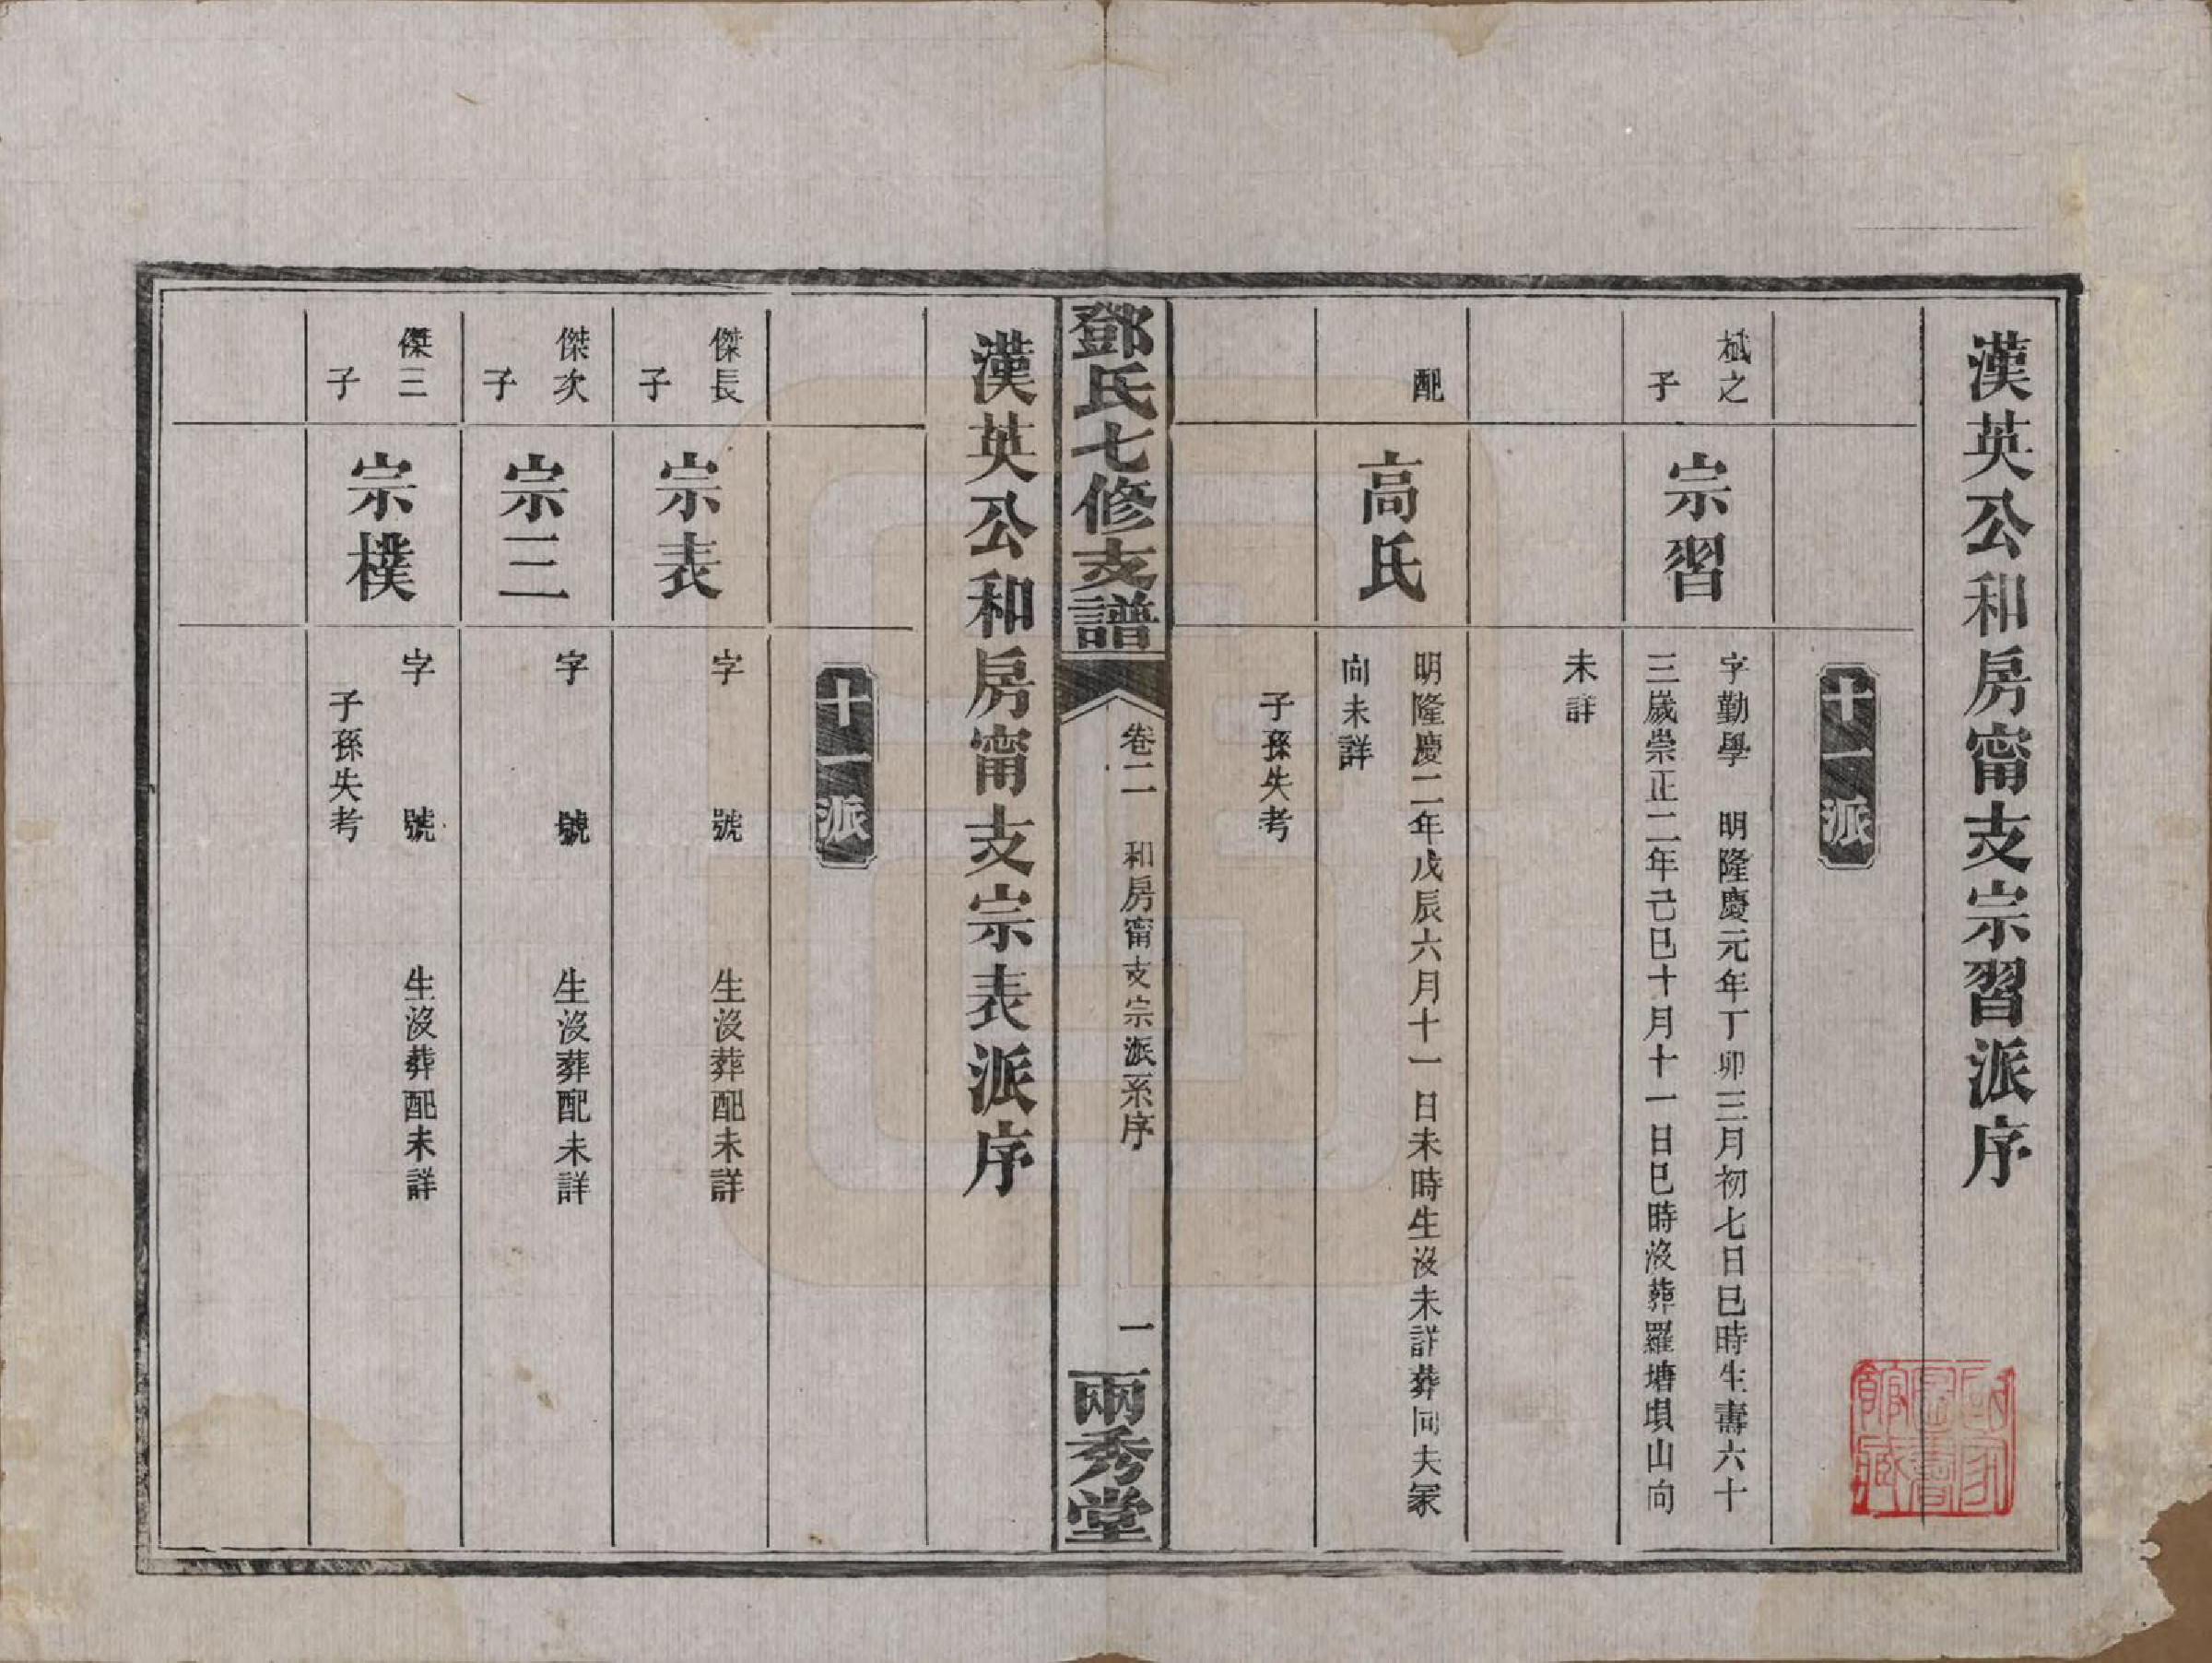 漢英公和房甯支宗習派序
十一派
棫之
子
宗習
字勤學　明隆慶元年丁卯三月初七日巳時生壽六十
三歲崇正二年己巳十月十一日巳時沒葬羅塘塤山向
未詳
配
高氏
明隆慶二年戊辰六月十一日未時生沒未詳葬同夫冢
向未詳
子孫失考
鄧氏七修支譜
卷二　和房甯支宗派系序
一
兩秀堂
漢英公和房甯支宗表派序
十一派
傑長
子
宗表
字　號　生沒葬配未詳
傑次
子
宗三
字　號　生沒葬配未詳
傑三
子
宗樸
字　號　生沒葬配未詳
子孫失考